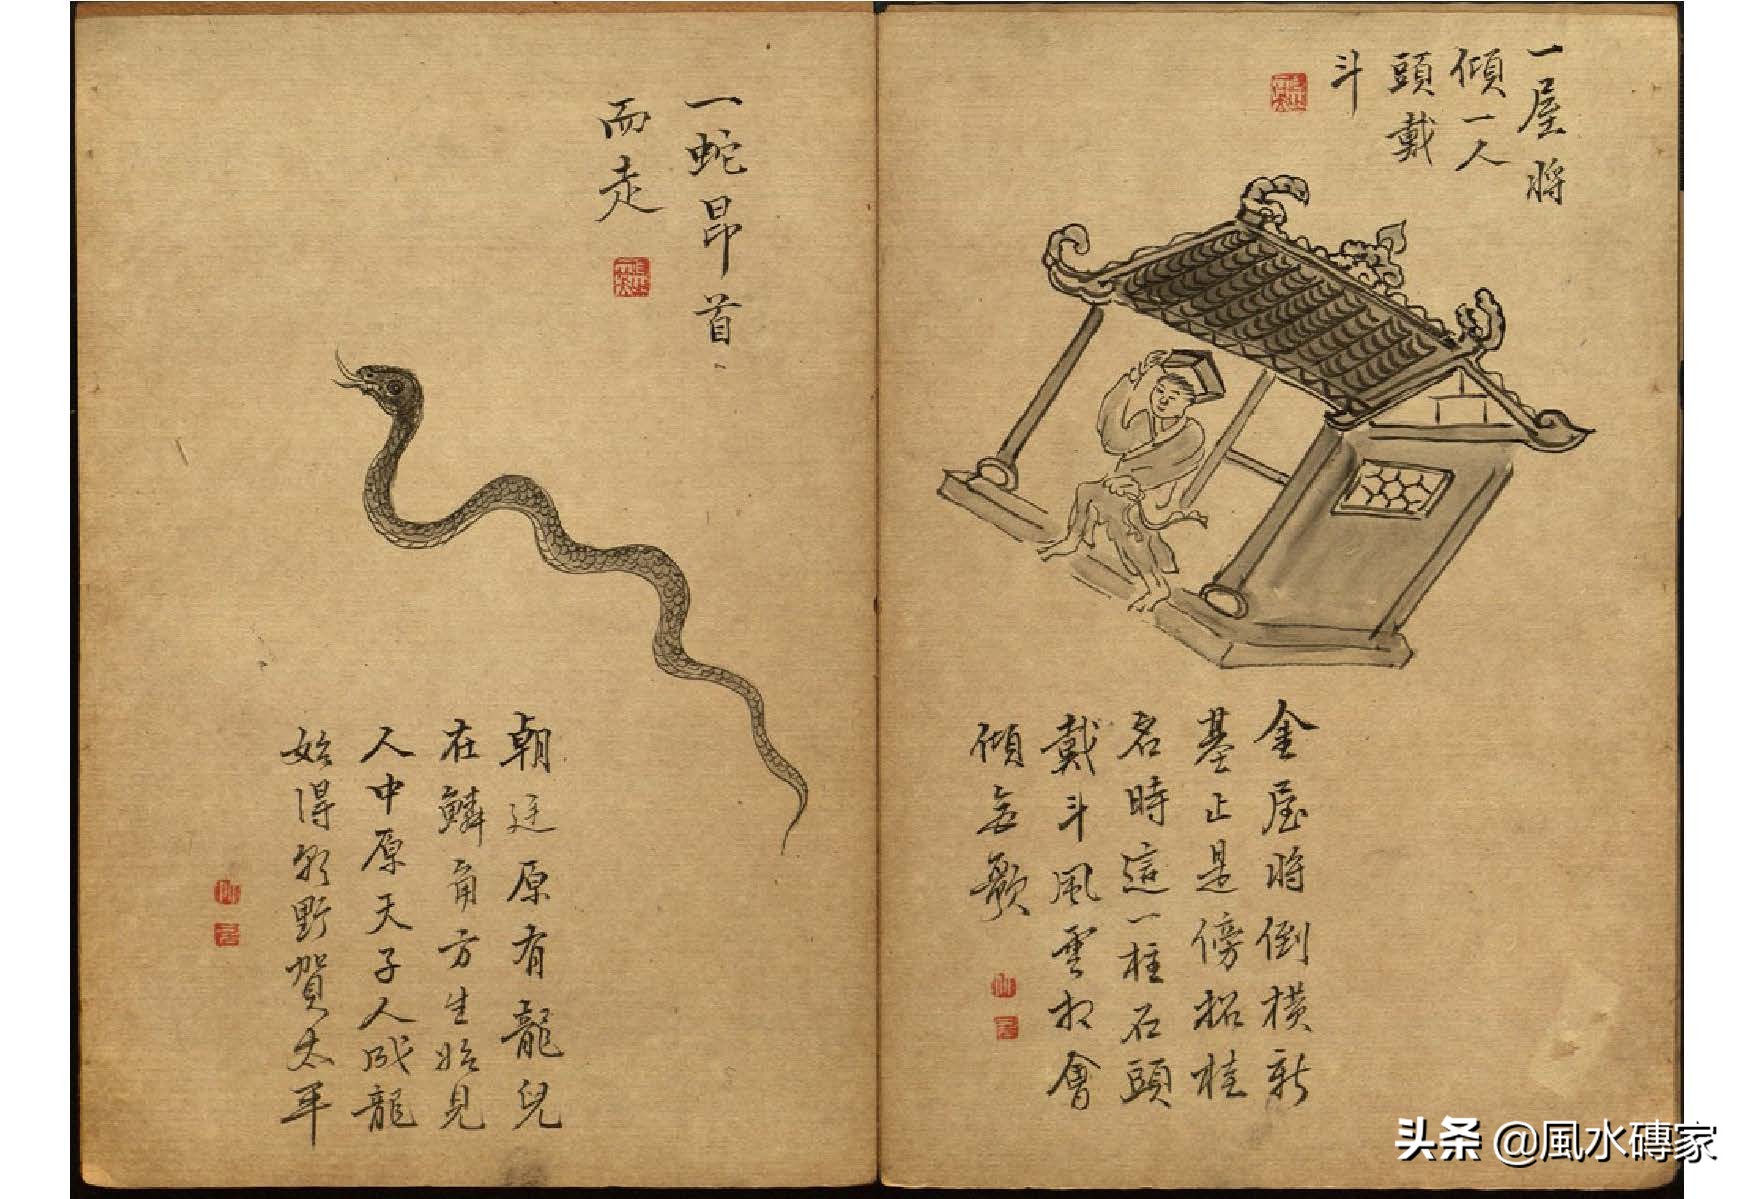 一屋將
傾一人
頭戴
斗
金屋將倒橫新
基止是傍招桂
名時這一柱石頭
戴斗風雲相會
傾
歌
一蛇昂首
而走
朝廷原有龍兒
在鱗角方生始見
人中原天子人成龍
始得朝野賀太平
头条 @風水磚家